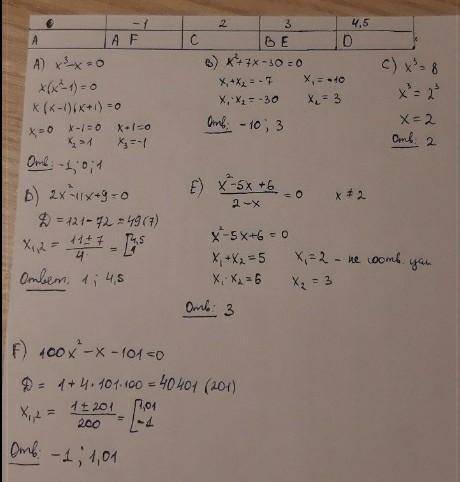 0 -1 2 3 4,5
A A F C B E D
A) x³-x=0
x(x²-1)=0
x(x-1)(x+1)=0
x₁=0 x-1=0 x+1=0
x₂=1 x₃=-1
Отв: -1; 0; 1
B) x²+7x-30=0
x₁+x₂=-7 x₁=-10
x₁·x₂=-30 x₂=3
Отв: -10; 3
C) x³=8
x³=2³
x=2
Отв: 2
D) 2x²-11x+9=0
D=121-72=49(7)
x₁,₂=(11±7)/4=[4,5 1
Ответ: 1; 4,5
E) (x²-5x+6)/(2-x)=0 x≠2
x²-5x+6=0
x₁+x₂=5 x₁=2 - не соотв. усл
x₁·x₂=6 x₂=3
Отв: 3
F) 100x²-x-101=0
D=1+4·101·100=40401(201)
x₁,₂=(1±201)/200=[1,01 -1
Отв: -1; 1,01